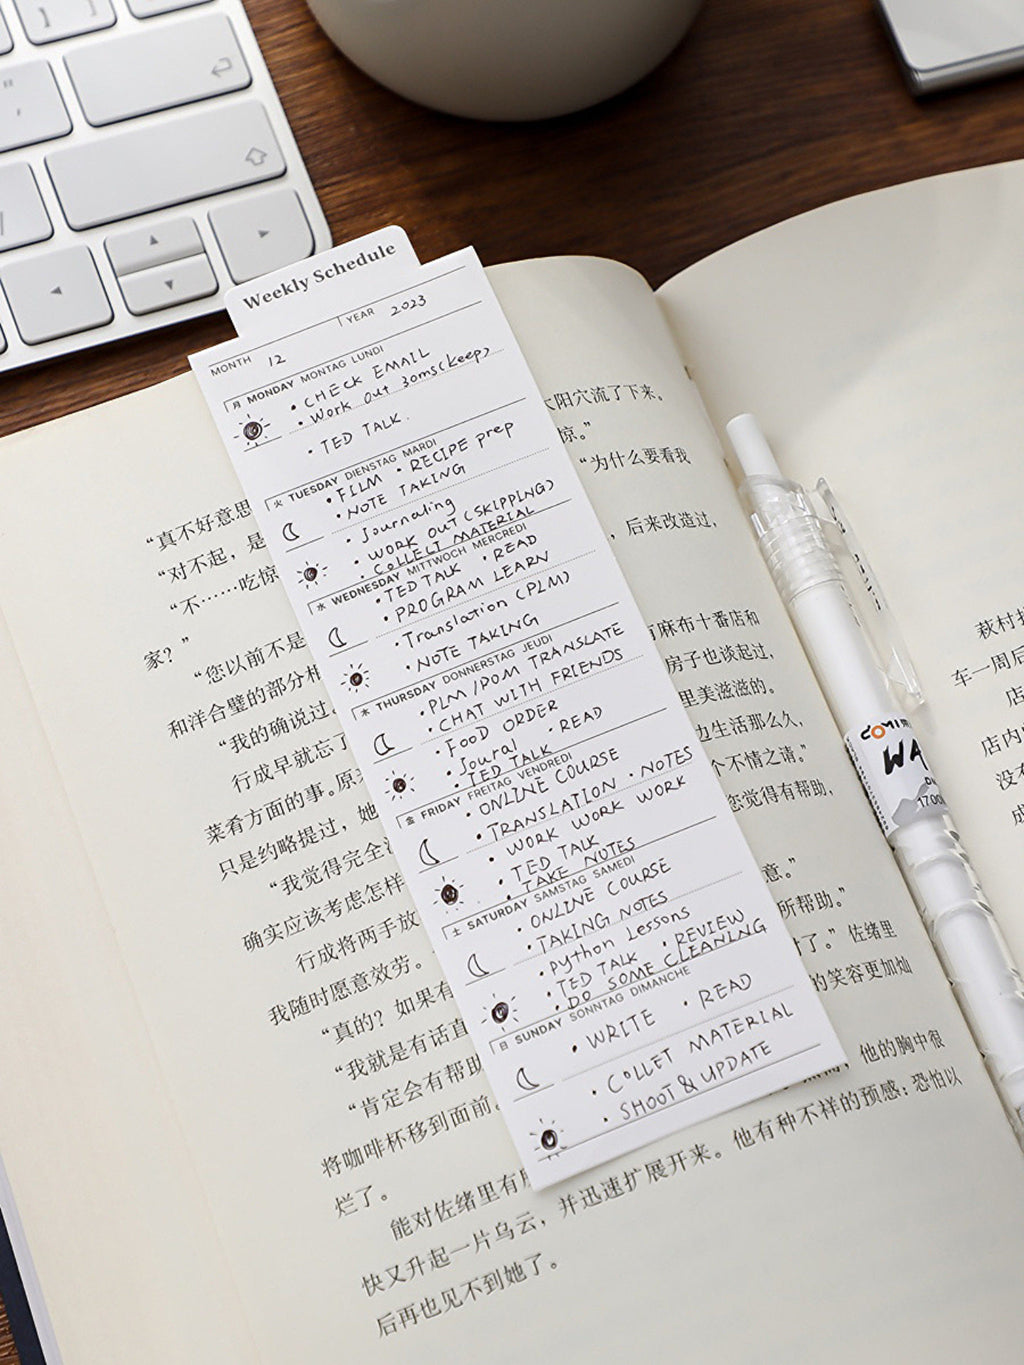 Weekly Schedule
MONTH 12 YEAR 2023
月 MONDAY MONTAG LUNDI
• CHECK EMAIL
• Work out 30ms(keep)
• TED TALK.
火 TUESDAY DIENSTAG MARDI
• FILM • RECIPE prep
• NOTE TAKING
• Journaling
• WORK OUT (SKIPPING)
• COLLECT MATERIAL
水 WEDNESDAY MITTWOCH MERCREDI
• TED TALK • READ
• PROGRAM LEARN
• Translation (PLM)
• NOTE TAKING
木 THURSDAY DONNERSTAG JEUDI
• PLM/POM TRANSLATE
• CHAT WITH FRIENDS
• FOOD ORDER
• Joural • READ
• TED TALK
金 FRIDAY FREITAG VENDREDI
• ONLINE COURSE
• TRANSLATION • NOTES
• WORK WORK WORK
• TED TALK
• TAKE NOTES
土 SATURDAY SAMSTAG SAMEDI
• ONLINE COURSE
• TAKING NOTES
• python Lessons
• TED TALK • REVIEW
• DO SOME CLEANING
日 SUNDAY SONNTAG DIMANCHE
• WRITE • READ
• COLLET MATERIAL
• SHOOT & UPDATE
“真不好意思
“对不起，是
“不……吃惊
家？”
“您以前不是
和洋合璧的部分相
“我的确说过
行成早就忘了
菜肴方面的事。原
只是约略提过，她
“我觉得完全
确实应该考虑怎样
行成将两手放
我随时愿意效劳。
“真的？如果有
“我就是有话直
“肯定会有帮助
将咖啡杯移到面前。
烂了。
能对佐绪里有
快又升起一片乌云，并迅速扩展开来。他有种不祥的预感：恐怕以
后再也见不到她了。
太阳穴流了下来。
惊。”
“为什么要看我
，后来改造过，
有麻布十番店和
房子也谈起过，
里美滋滋的。
边生活那么久，
个不情之请。”
您觉得有帮助，
意。”
所帮助。”
时了。”佐绪里
的笑容更加灿
他的胸中很
萩村
车一周后
店
店内
没有
成
COMIX
WA
1700